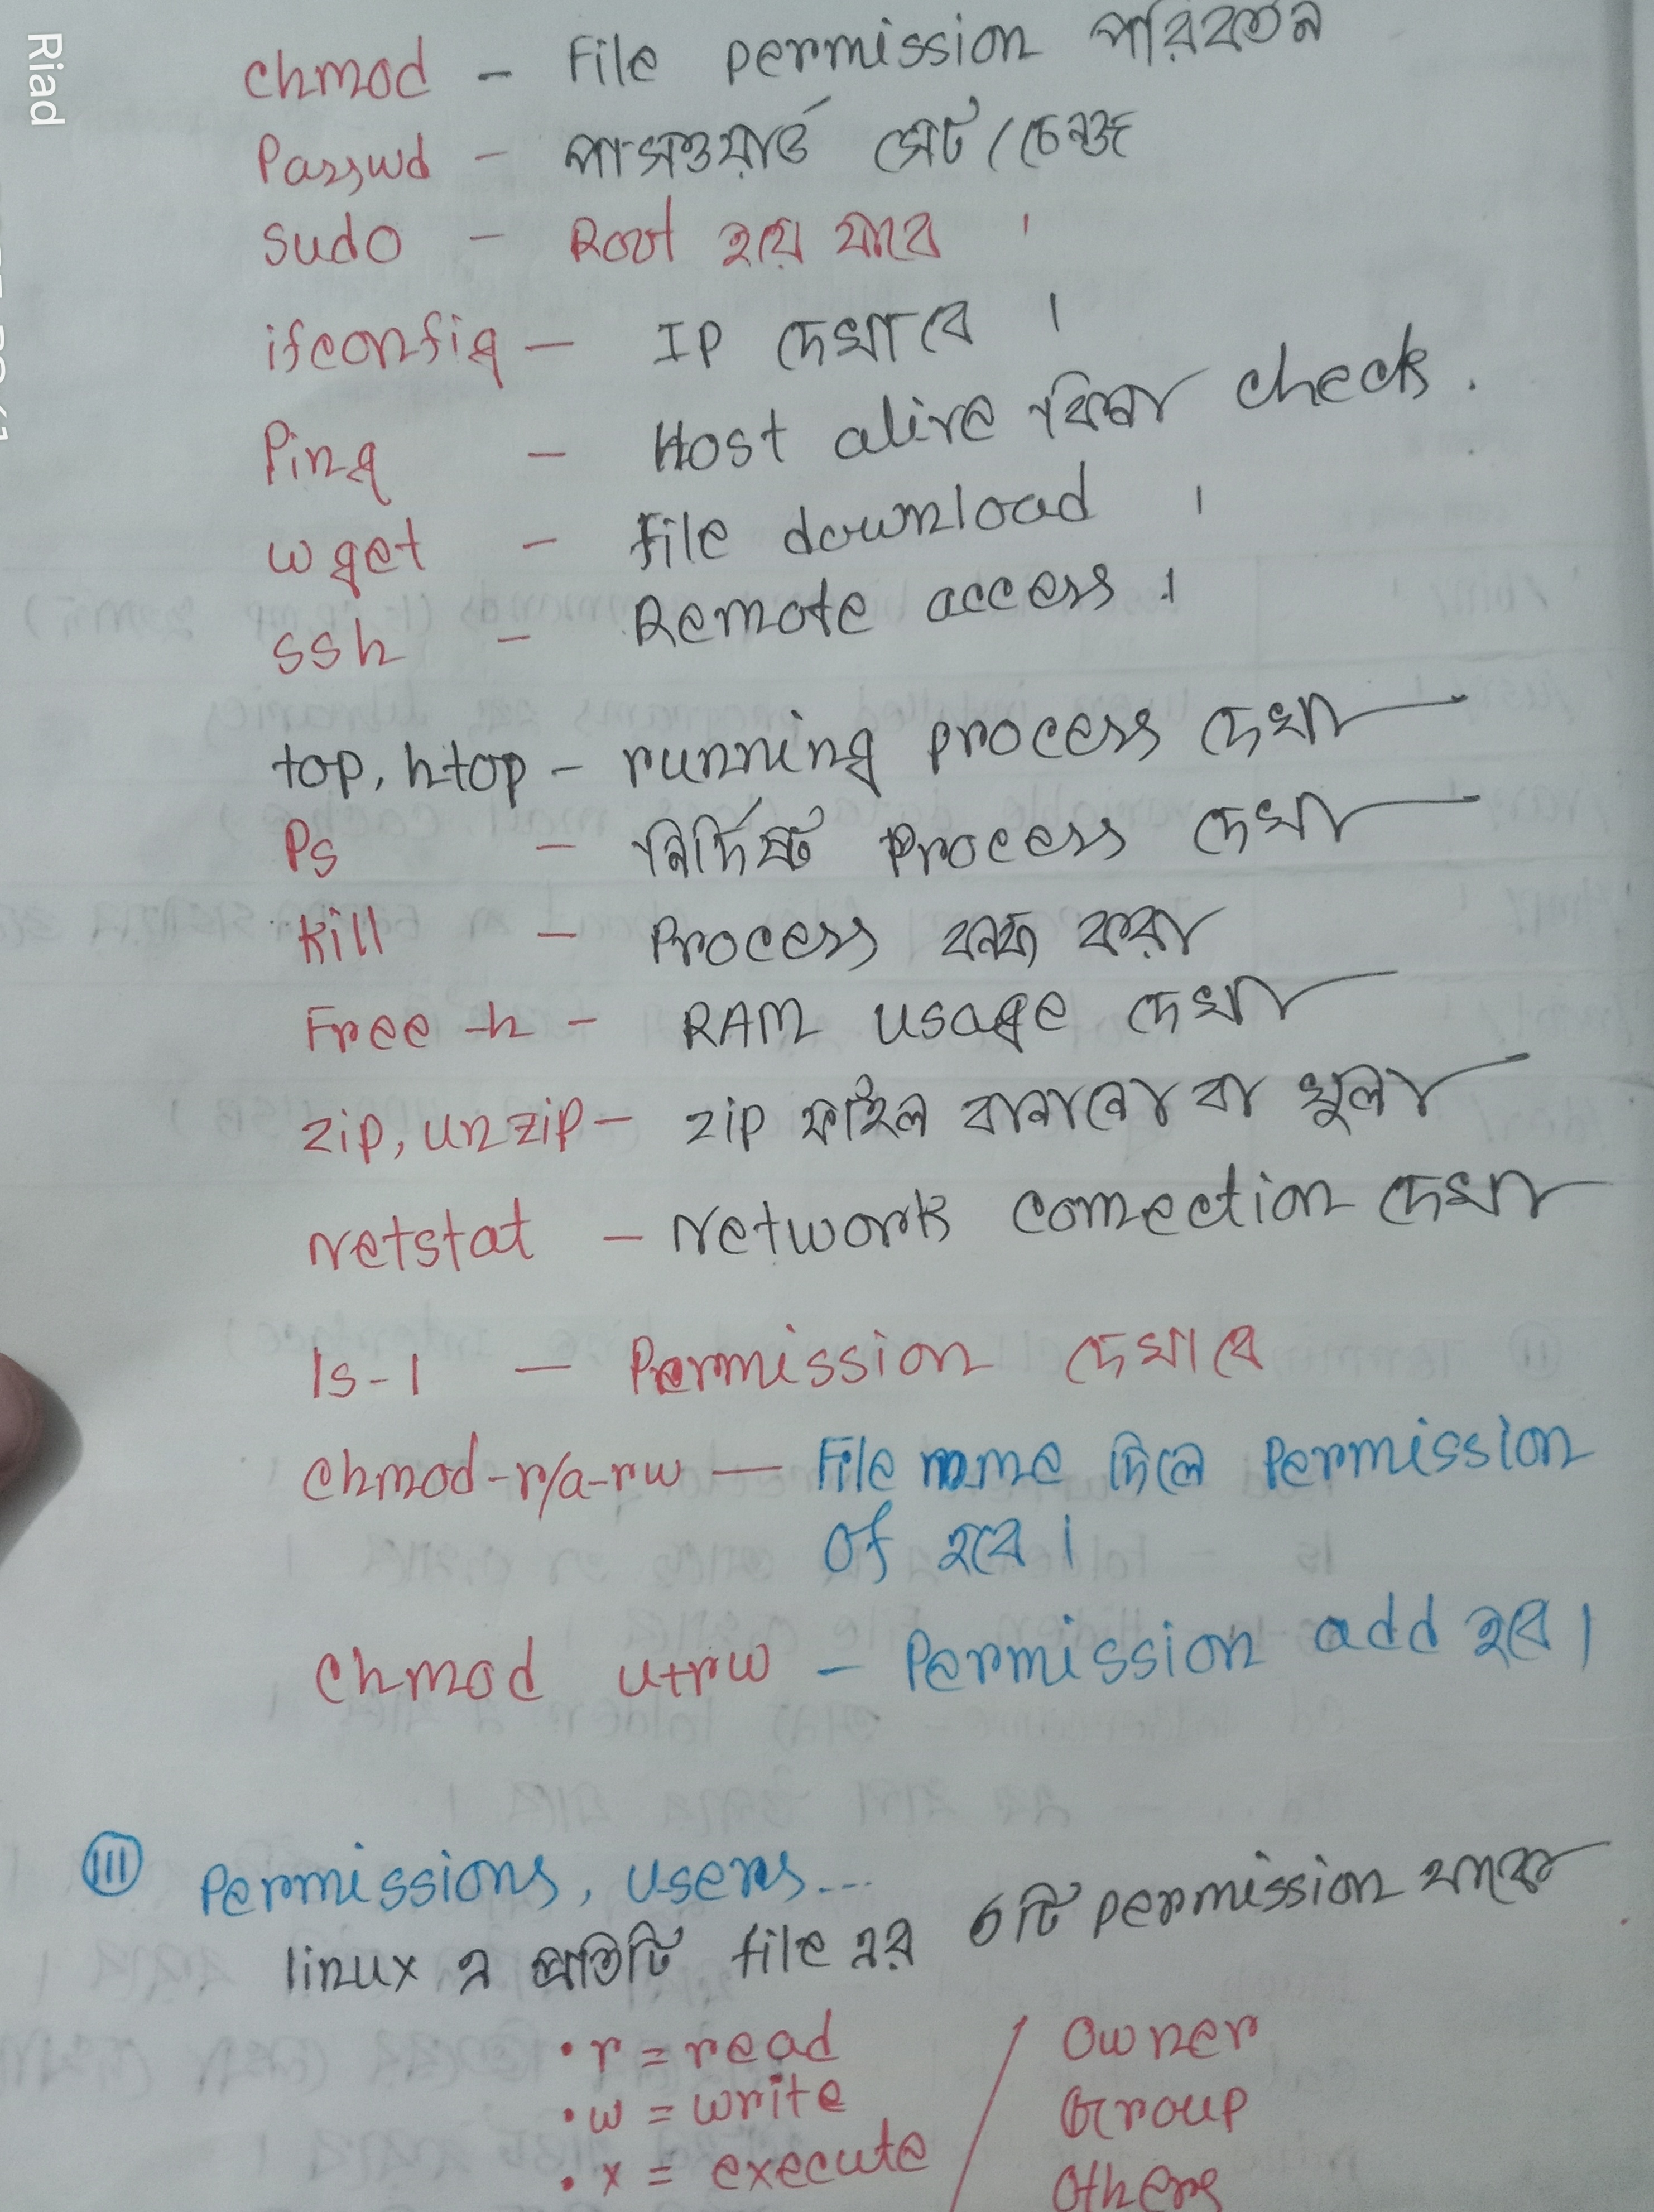 Riad
chmod - File permission পরিবর্তন
Passwd - পাসওয়ার্ড সেট/চেঞ্জ
sudo - Root হয়ে যাবে ।
ifconfig - IP দেখাবে ।
Ping - Host alive কিনা check.
wget - file download ।
ssh - Remote access ।
top, htop - running process দেখা
Ps - নির্দিষ্ট process দেখা
kill - Process বন্ধ করা
Free -h - RAM usage দেখা
zip, unzip - zip ফাইল বানানো বা খুলা
netstat - Network connection দেখা
ls-l - Permission দেখাবে
chmod-r/a-rw - File name দিলে Permission
of হবে ।
chmod u+rw - Permission add হবে ।
III Permissions, users...
linux এ প্রতিটি file এর ৩টি permission থাকে
• r = read / Owner
• w = write Group
• x = execute Others